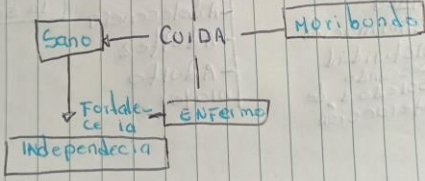 Sano
CUIDA
Moribundo
Fortale-
ce la
ENFermo
INdependecIa